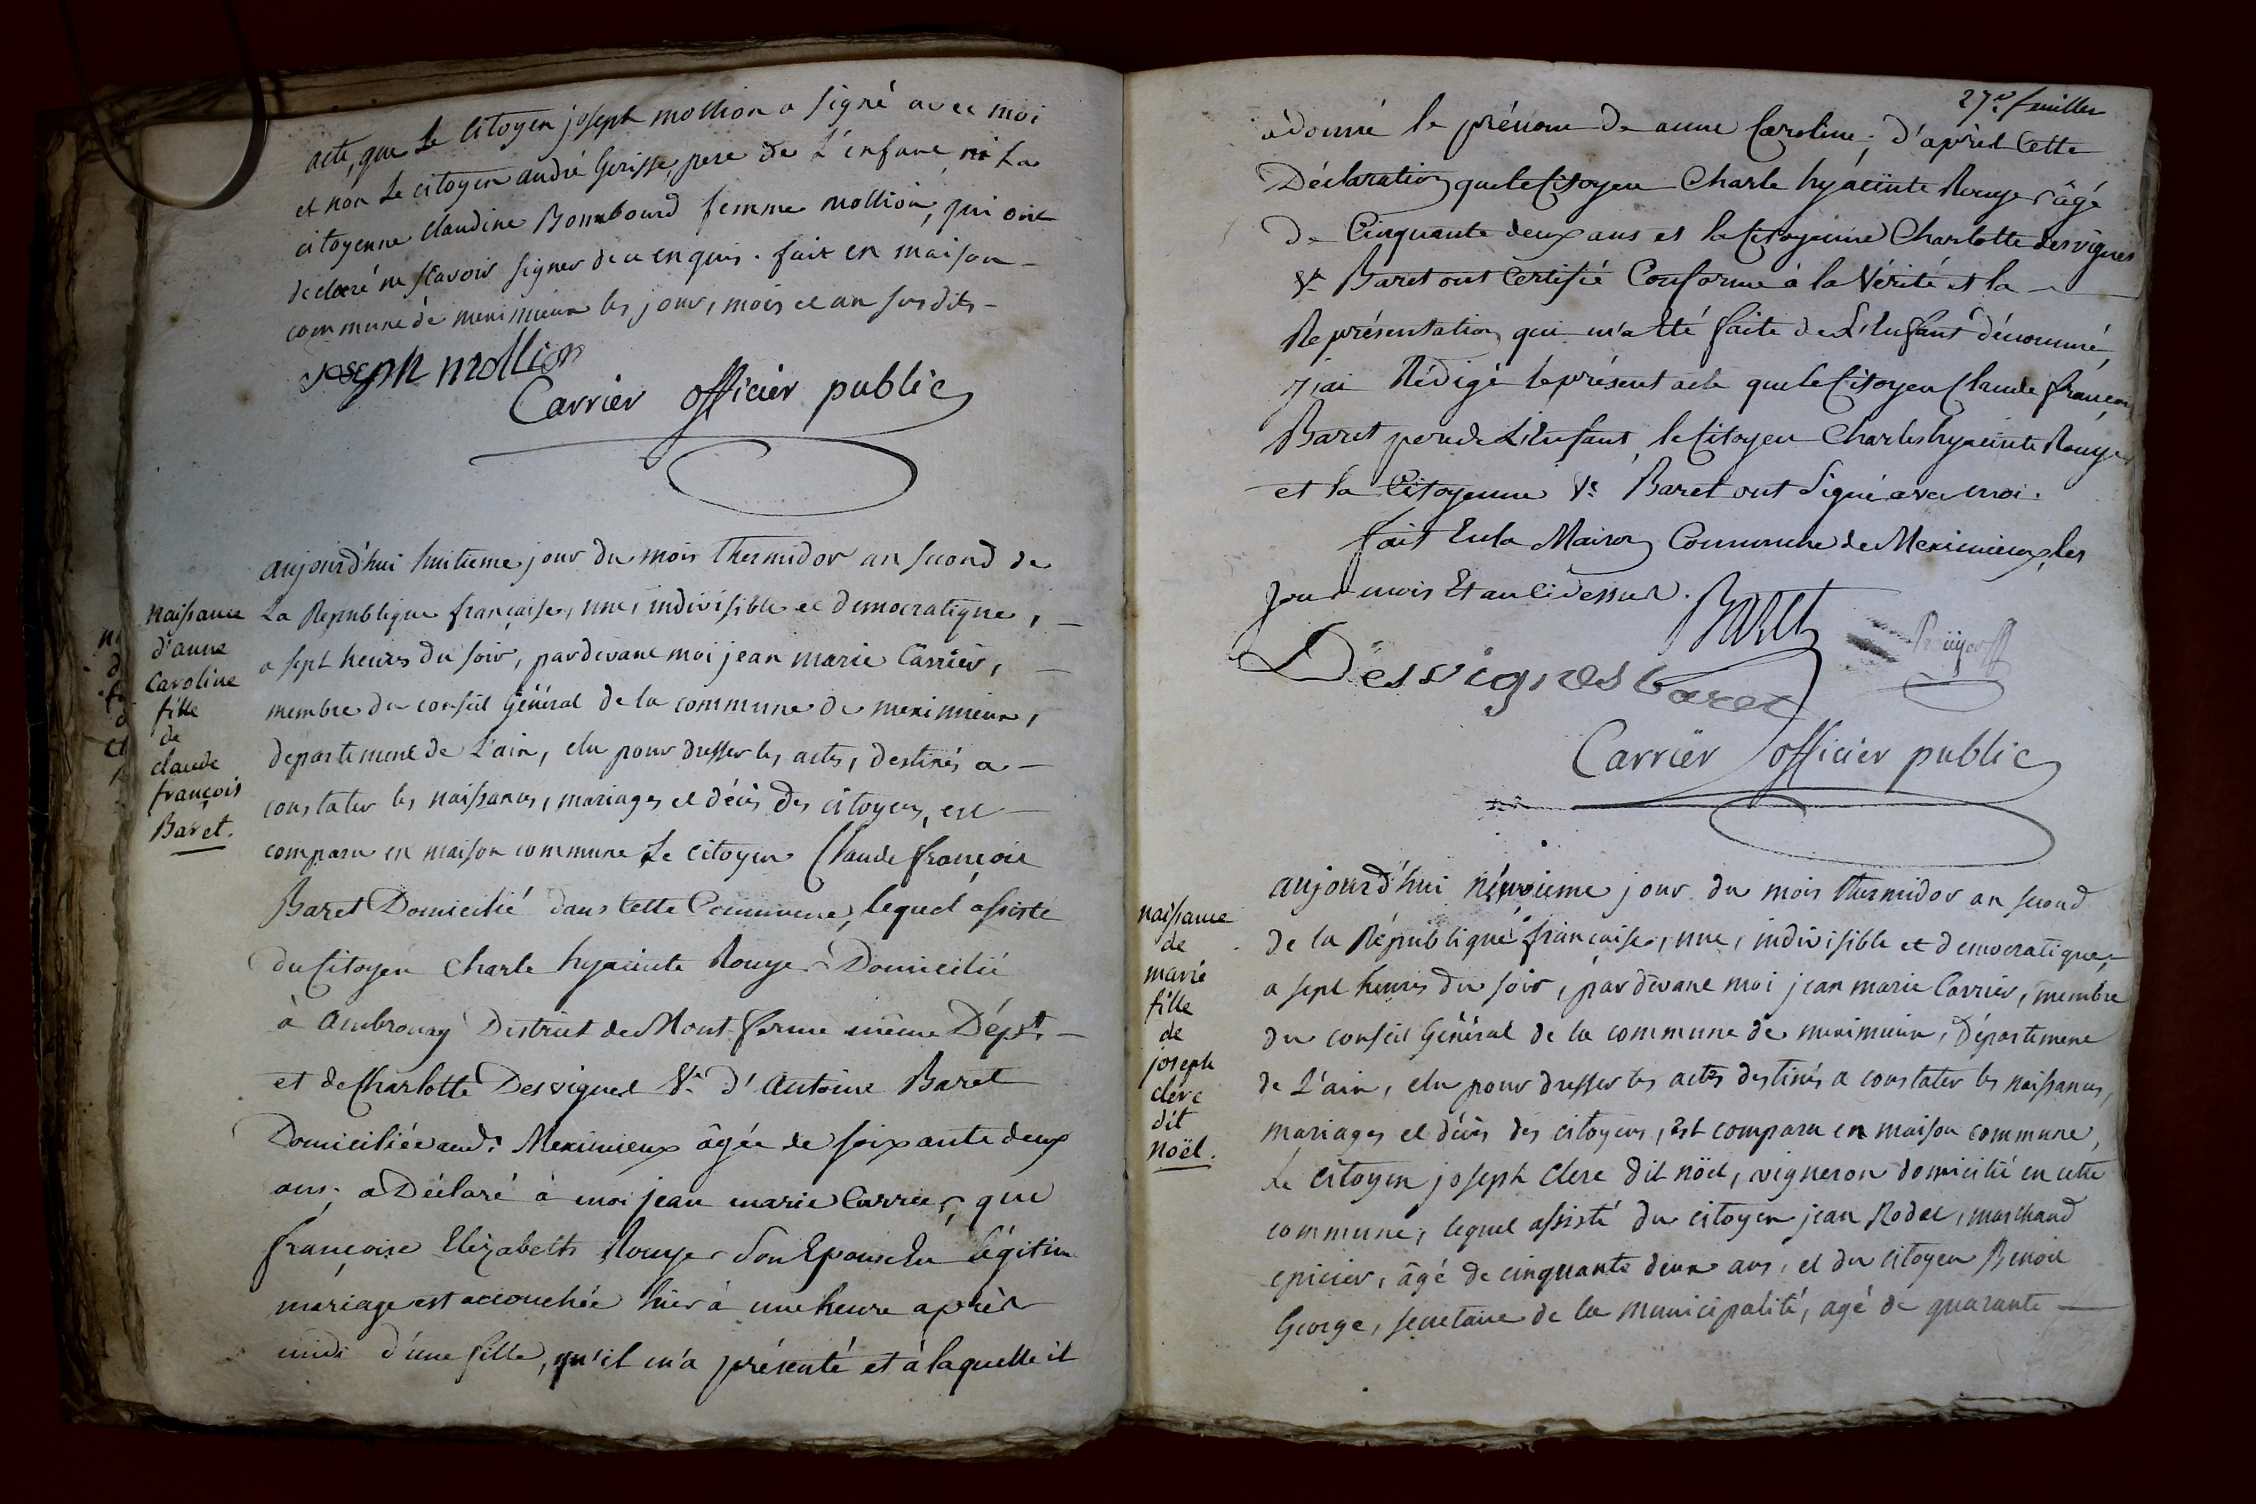 acte, que Le Citoyen joseph mollion a signé avec moi
et non Le citoyen andré Gerisse, pere de L'enfant, ni La
citoyenne claudine Bombourd femme mollion, qui ont
declaré ne sçavoir signer de ce enquis. fait en maison
commune de meximieux les jour, mois et an susdits
joseph mollion
Carrier officier public
naissance
d'anne
Caroline
fille
de
claude
françois
Baret.
aujourd'hui huitieme jour du mois thermidor an second de
La Republique française, une, indivisible et democratique,
a sept heures du soir, pardevant moi jean marie Carrier,
membre du conseil général de la commune de meximieux,
departement de L'ain, elu pour dresser les actes, destinés a
constater les naissances, mariages et décès des citoyens, est
comparu en maison commune Le citoyen Claude françois
Baret Domicilié dans Cette Commune, lequel assisté
du Citoyen Charle hyacinte Rouyer Domicilié
à Ambronay District de Mont ferme même Dépt.
et de Charlotte Desvignes Ve. d'Antoine Baret
Domiciliée aud. Meximieux âgée de soixante deux
ans, a Déclaré à moi jean marie Carrier, que
françoise Elizabeth Rouyer son Epouse En légitime
mariage est accouchée hier à une heure après
midi d'une fille, qu'il m'a présenté et à laquelle il
27e. feuillet
a donné le prénom de anne Caroline; d'après cette
Déclaration que le Citoyen Charle hyacinte Rouyer âgé
de Cinquante deux ans et la Citoyenne Charlotte desvignes
Ve. Baret ont Certifié Conforme à la Vérité et la
Représentation qui m'a été faite de L'Enfant dénommé,
j'ai Rédigé le présent acte que le Citoyen Claude françois
Baret pere de L'Enfant, le Citoyen Charles hyacinte Rouyer
et la Citoyenne Ve. Baret ont signé avec moi.
fait En la Maison Commune de Meximieux, les
jour mois Et an ci dessus.
BARET
Rouyer
Desvignes baret
Carrier officier public
naissance
de
marie
fille
de
joseph
clerc
dit
noël.
aujourd'hui néuvieme jour du mois thermidor an second
de la République française, une, indivisible et democratique,
a sept heures du soir, pardevant moi jean marie Carrier, membre
du conseil Général de la commune de meximieux, Département
de L'ain, elu pour dresser les actes destinés a constater les naissances,
mariages et décès des citoyens, est comparu en maison commune,
Le citoyen joseph clerc dit noël, vigneron domicilié en cette
commune, lequel assisté du citoyen jean Rodet, marchand
epicier, âgé de cinquante deux ans, et du citoyen Benoit
George, secretaire de la municipalité, agé de quarante